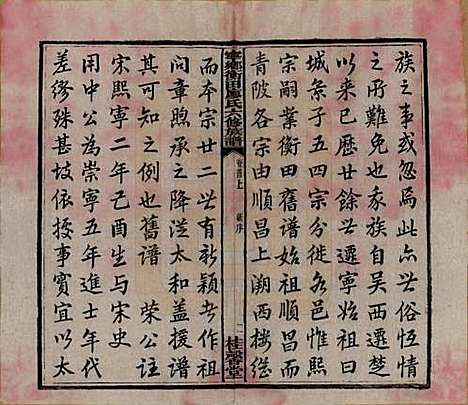 族之事或忽焉此亦世俗恆情
之所難免也我家族自吳西遷楚
以来已歷廿餘世遷寧始祖曰
城景子五四宗分徙各邑惟熙
宗嗣業衡田舊譜始祖順昌而
青陂各宗由順昌上溯西樓從
寧鄉衡田楊氏六修族譜
卷首上
新序
一
桂馨堂
而本宗廿二世有新穎者作祖
問章煦承之降從太和盖援譜
其可知之例也舊譜 榮公對
宋熙寧二年己酉生與宋史
用中公為崇寧五年進士年代
差繆殊甚坡依援事實宜以太